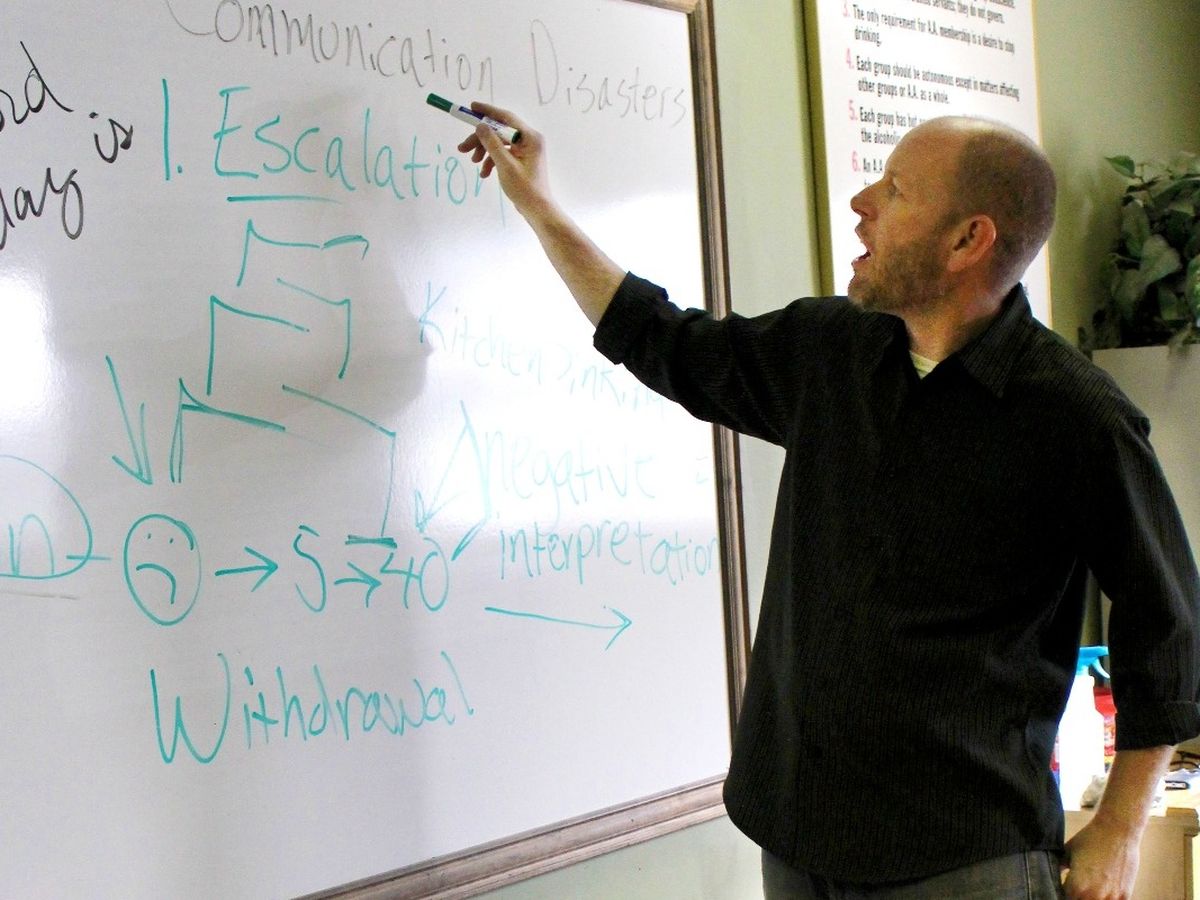 Communication Disasters
is
1. Escalation
Kitchen
negative =
interpretation
n
→ 5 → 40
Withdrawal
3. The only requirement for A.A. membership is a desire to stop
drinking.
4. Each group should be autonomous except in matters affecting
other groups or A.A. as a whole.
5. Each group has but
the alcoholic
6. An A.A.